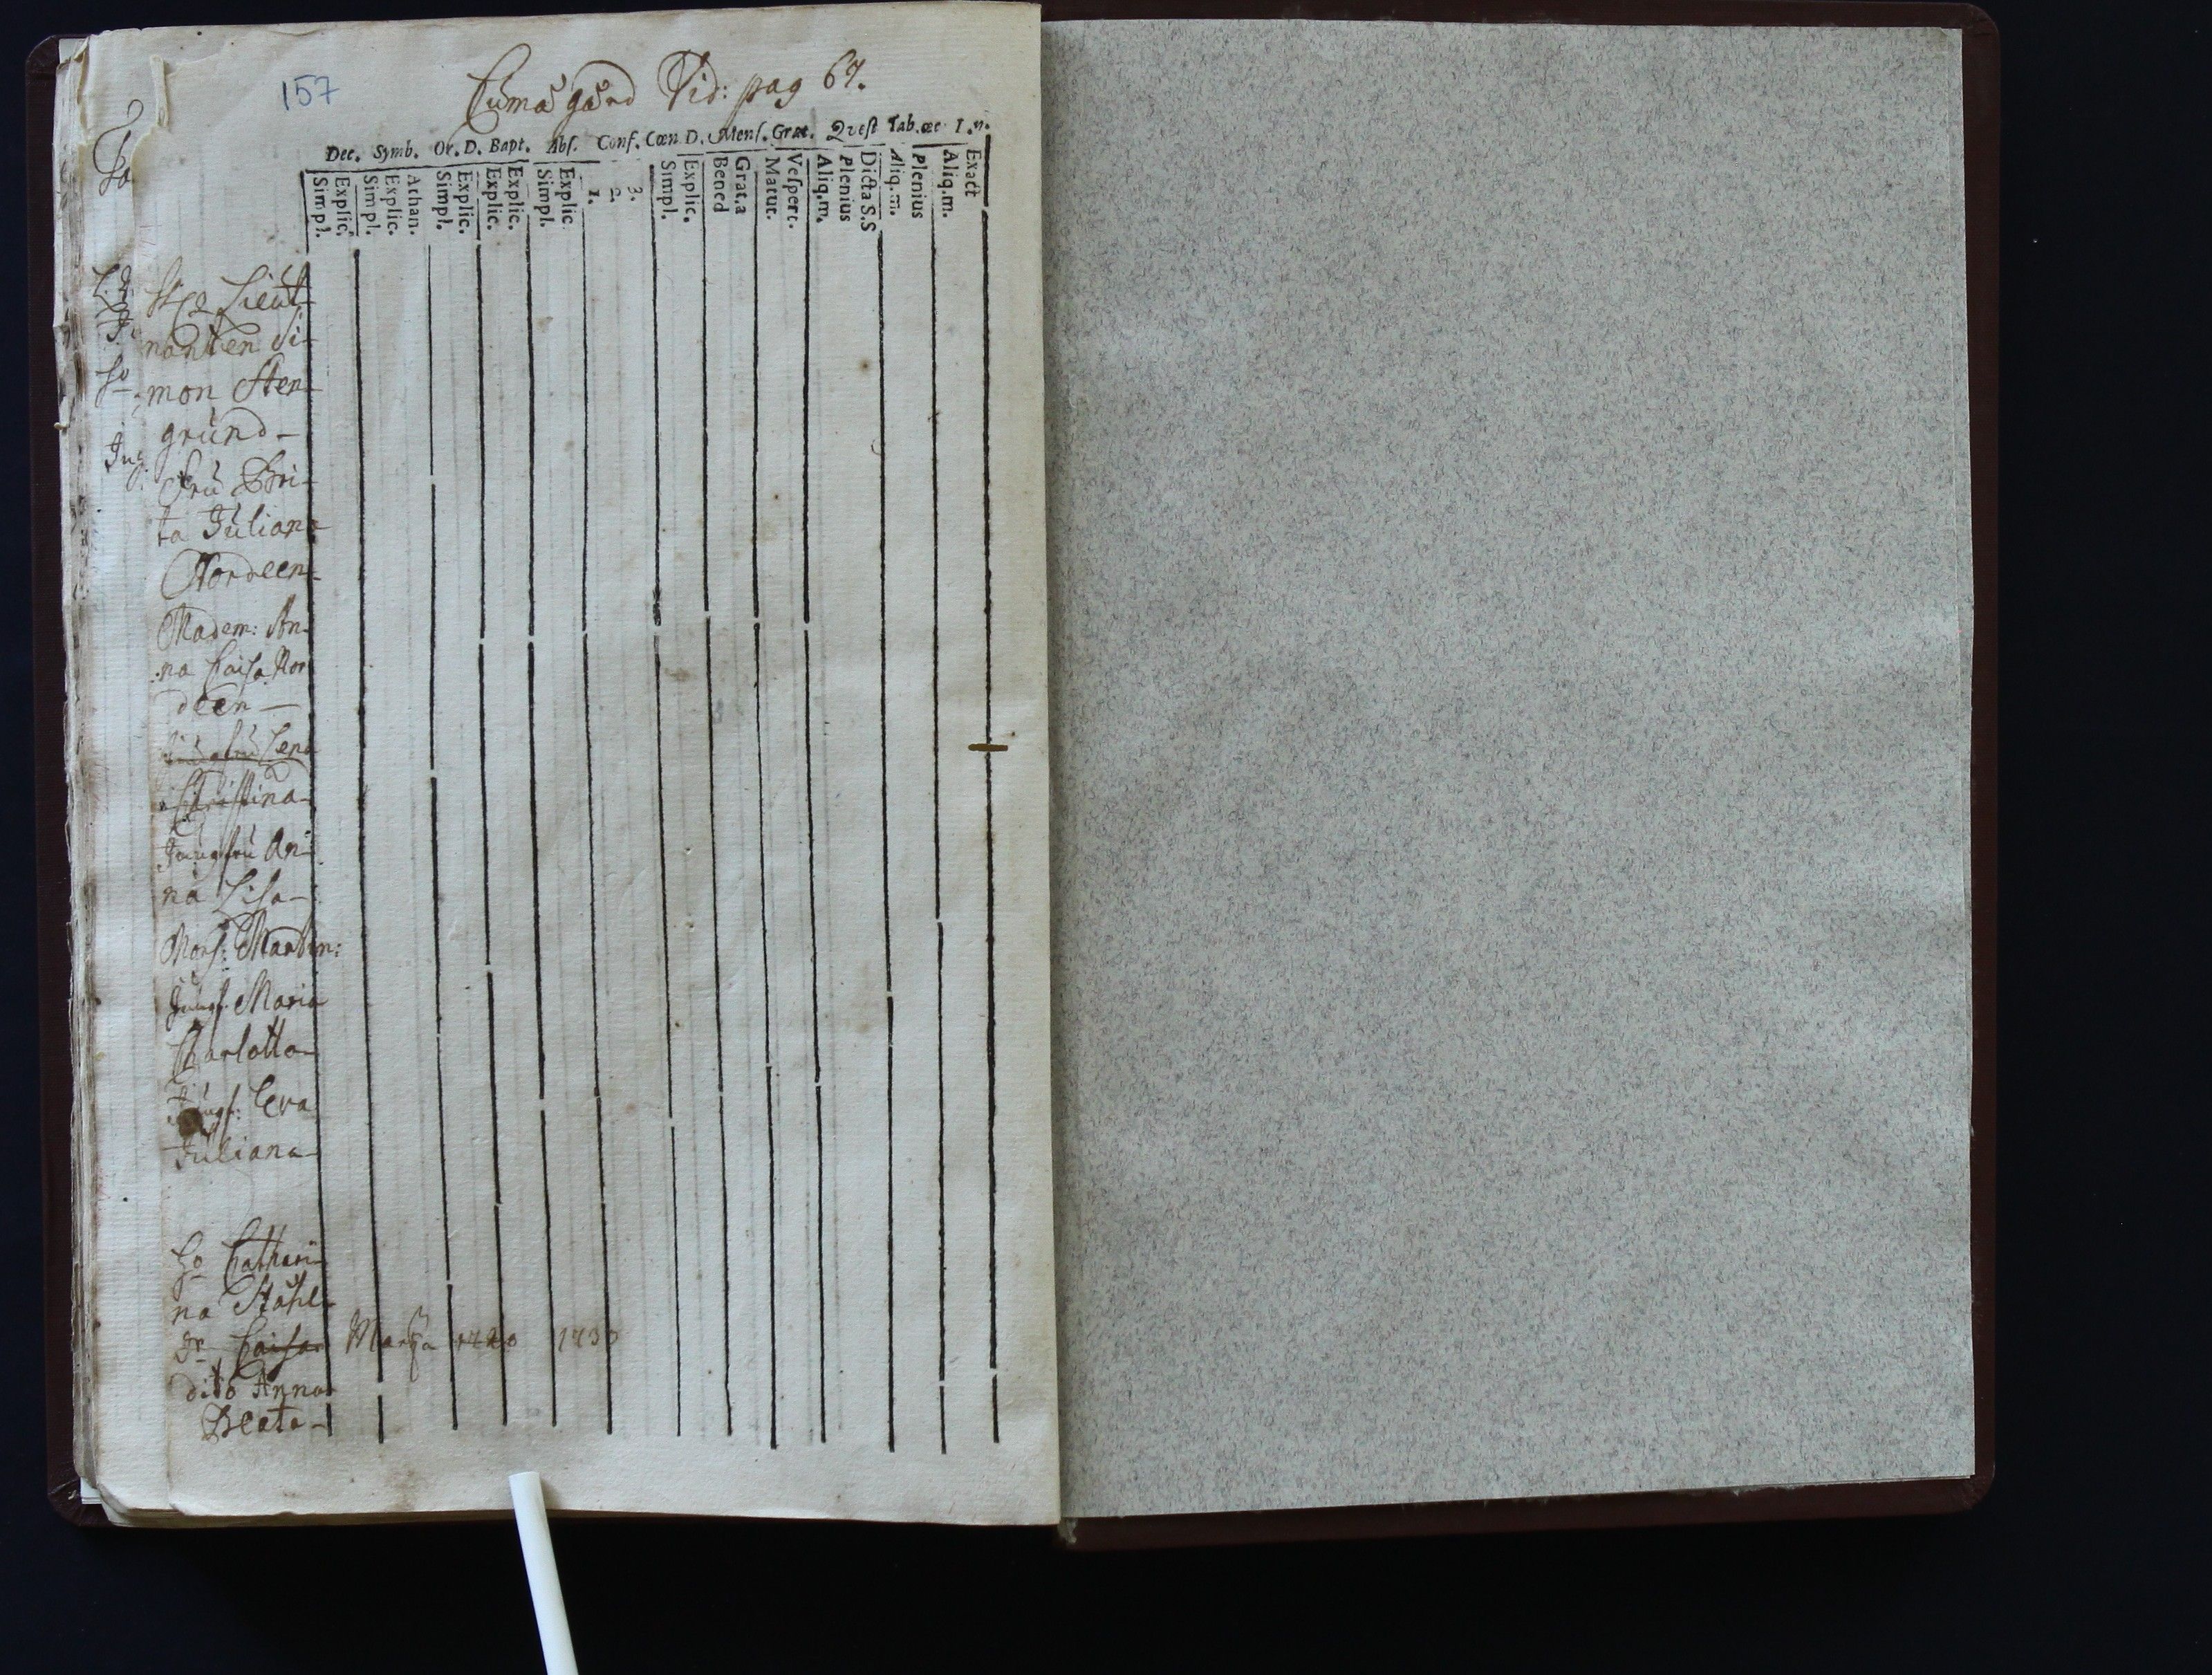 157
Cumågård Vid: pag 67.
Dec. Symb. Or. D. Bapt. Abs. Conf. Cœn D. Mens. Grat. Qvest Tab. œc I. n.
Simpl.
Explic.
Simpl.
Explic.
Athan.
Simpl.
Explic.
Explic.
Explic.
Simpl.
Explic
1.
2.
3.
Simpl.
Explic.
Bened
Grat.a
Matut.
Vespert.
Aliq.m.
Plenius
Dicta S.S
Aliq.m.
Plenius
Aliq.m.
Exact
Lieut-
nanten Si-
mon Sten-
grund-
Fru Bri-
ta Juliana
Nordeen-
Madem: An-
na Caisa Nor
deen-
Jungfru Lena
Christina
Jungfru An-
na Lisa-
Mons: Martin:
Jungf. Maria
Charlotta
Jungf: Eva
Juliana
Cathari-
na Ståhl-
Caisa Marja 1720 1730
dito Anna
Beata-